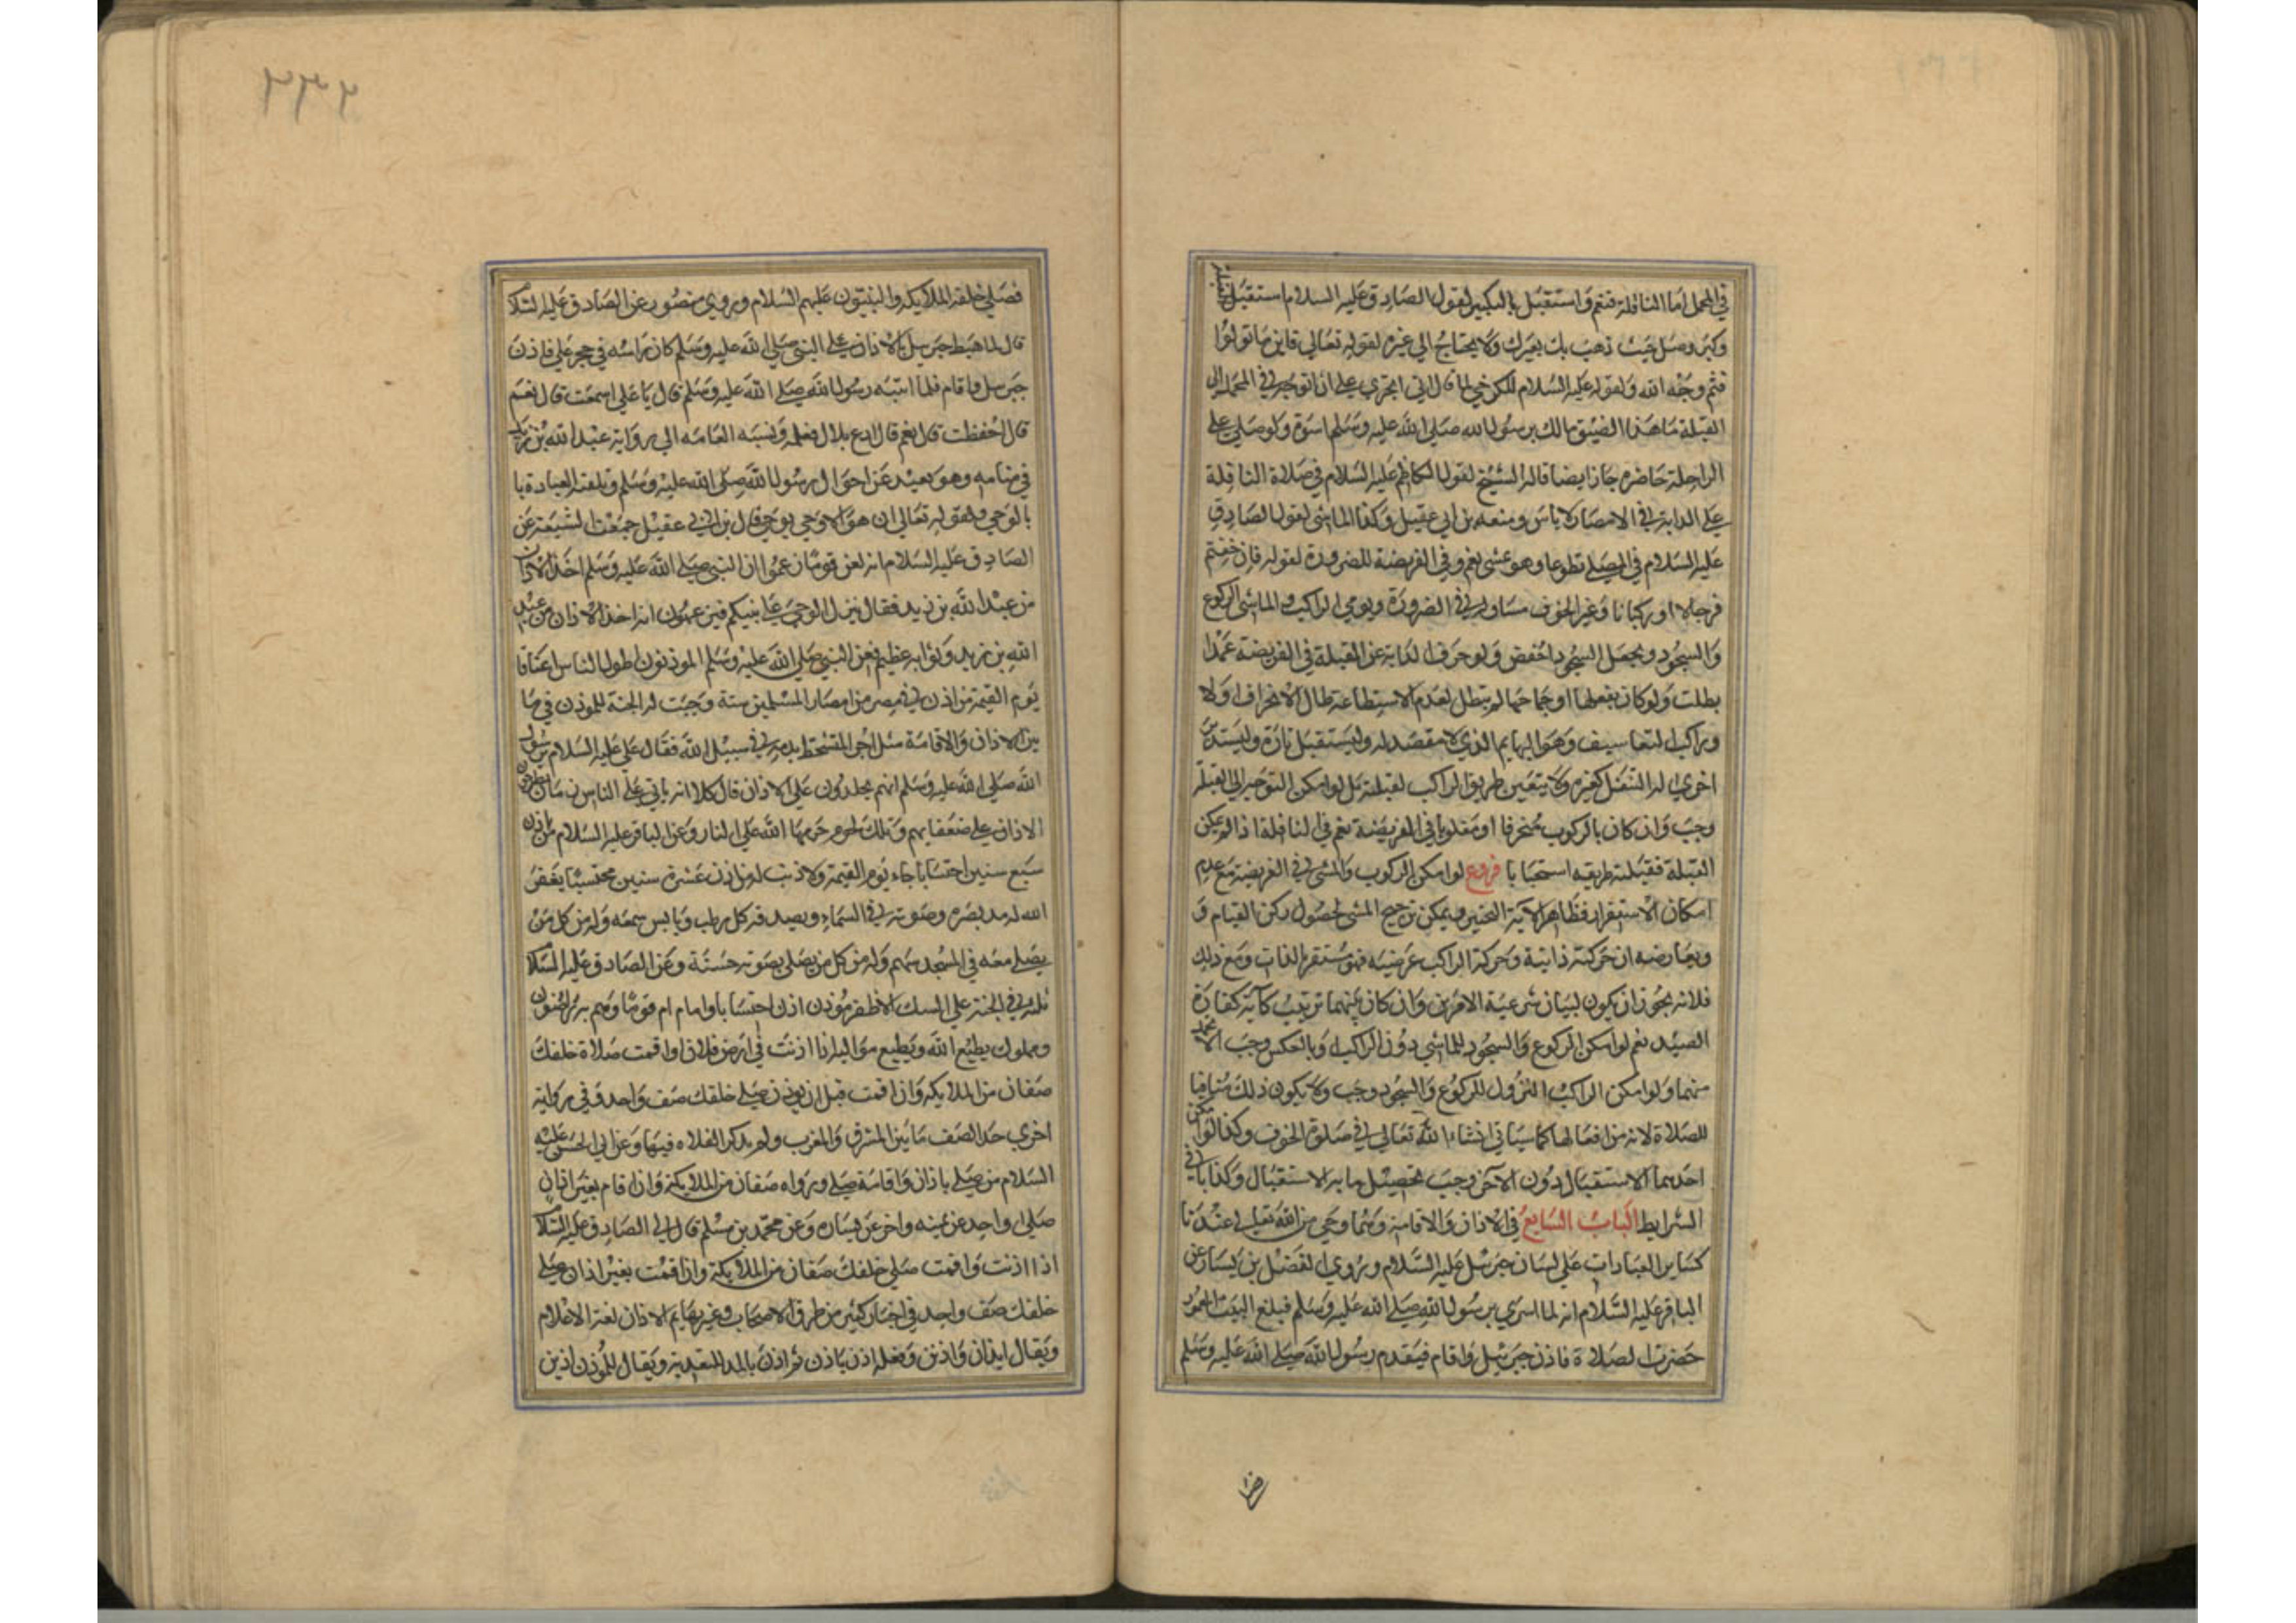 في المحمل اما النافلة فنعم واستقبل بالتكبير لقول الصادق عليه السلام استقبل القبلة
وكبر وصل حيث ذهب بك بعيرك ولا يحتاج الي غيره لقوله تعالي فاين ما تولوا
فثم وجه الله ولقوله عليه السلام للكرخي لما قال اني اقدر علي ان اتوجه في المحمل الي
القبلة ما هذا الضيق مالك برسول الله صلي الله عليه وسلم اسوة ولو صلي علي
الراحلة حاضره جاز ايضا قاله الشيخ لقول الكاظم عليه السلام في صلاة النافلة
علي الدابة في الامصار لا باس ومنعه بن ابي عقيل وكذا الماشي لقول الصادق
عليه السلام في المصلي تطوعا وهو يمشي نعم وفي الفريضة للضرورة لقوله فان خفتم
فرجالا او ركبانا وغير الخوف مساو له في الضرورة ويومي الراكب والماشي الركوع
والسجود ويجعل السجود اخفض ولو حرف الدابة عن القبلة في الفريضة عمدا
بطلت ولو كان بفعلها او جماحها لم يبطل لعدم الاستطاعة طال الانحراف ولا
وراكب التعاسيف وهو الهايم الذي لا مقصد له وليستقبل تارة وليستدبر
اخري له التنفل كغيره ولا يتعين طريق الراكب لقبلته بل لو امكن التوجه الي القبلة
وجب وان كان بالركوب منحرفا او مقلوبا في الفريضة نعم في النافلة اذا لم يمكن
القبلة فقبلته طريقه استحبابا فروع لو امكن الركوب والمشي في الفريضة مع عدم
امكان الاستقرار فظاهر الاية التخيير ويمكن ترجيح المشي لحصول ركن القيام و
ويعارضه ان حركته ذاتية وحركة الراكب عرضيه فهو مستقر بالذات ومع ذلك
فلانه يجوز ان يكون لبيان شرعية الامرين وان كان بينهما ترتيب كآية كفارة
الصيد نعم لو امكن الركوع والسجود للماشي دون الراكب وبالعكس وجب الا
منهما ولو امكن الراكب النزول للركوع والسجود وجب ولا يكون ذلك منافيا
للصلاة لانه من افعالها كما سياتي انشاء الله تعالي في صلوة الخوف وكذا لو امكن
احدهما الاستقبال دون الآخر وجب تحصيل ما به الاستقبال وكذا باقي
الشرايط الباب السابع في الاذان والاقامة وهما وحي من الله تعالي عندنا
كساير العبادات علي لسان جبرئيل عليه السلام وروي الفضيل بن يسار عن
الباقر عليه السلام انه لما اسري برسول الله صلي الله عليه وسلم فبلغ البيت المعمور
حضرت الصلاة فاذن جبرئيل واقام فيقدم رسول الله صلي الله عليه وسلم
٢٣٢
فصلي خلفه الملايكه والنبيون عليهم السلام وروي منصور عن الصادق عليه السلا
قال لما هبط جبرئيل بالاذان علي النبي صلي الله عليه وسلم كان راسه في حجر علي فاذن
جبرئيل واقام فلما انتبه رسول الله صلي الله عليه وسلم قال يا علي اسمعت قال نعم
قال حفظت قال نعم قال ادع بلال فعلمه ونسبه العامه الي رواية عبد الله بن زيد
في منامه وهو بعيد عن احوال رسول الله صلي الله عليه وسلم وتلقنه العبادة با
بالوحي ولقوله تعالي ان هو الا وحي يوحي قال بن ابي عقيل جمعت الشيعة عن
الصادق عليه السلام انه لعن قوما زعموا ان النبي صلي الله عليه وسلم اخذ الاذان
من عبد الله بن زيد فقال ينزل الوحي علي نبيكم فيزعمون انه اخذ الاذان من عبد
الله بن زيد وثوابه عظيم فعن النبي صلي الله عليه وسلم الموذنون اطول الناس اعناقا
يوم القيمة من اذن في مصر من امصار المسلمين سنة وجبت له الجنة للموذن في ما
بين الاذان والاقامة مثل اجر المتشحط بدمه في سبيل الله فقال علي عليه السلام رسول
الله صلي الله عليه وسلم انهم يجتلدون علي الاذان قال كلا انه ياتي علي الناس زمان يطرحون
الاذان علي ضعفايهم وتلك لحوم حرمها الله علي النار وعن الباقر عليه السلام من اذن
سبع سنين احتسابا جاء يوم القيمة ولا ذنب له من اذن عشرة سنين محتسبا يغفر
الله له مد بصره وصوته في السماء ويصدقه كل رطب ويابس سمعه وله من كل من
يصلي معه في المسجد سهم وله من كل من يصلي بصوته حسنة وعن الصادق عليه السلا
ثلثه في الجنة علي المسك الاذفر موذن اذن احتسابا وامام ام قوما وهم به راضون
ومملوك يطيع الله ويطيع مواليه اذا اذنت في ارض فلاة واقمت صلاة خلفك
صفان من الملايكه وان اقمت قبل ان توذن صلي خلفك صف واحد وفي رواية
اخري حد الصف ما بين المشرق والمغرب ولم يذكر الفلاه فيها وعن ابي الحسن عليه
السلام من صلي باذان واقامة صلي وراه صفان من الملايكة وان اقام بغير اذان
صلي واحد عن يمينه واخر عن يساره وعن محمد بن مسلم قال لي الصادق عليه السلا
اذا اذنت واقمت صلي خلفك صفان من الملايكة وان اقمت بغير اذان صلي
خلفك صف واحد في اخبار كثير من طرق الاصحاب وغيرها ثم الاذان لغة الاعلام
ويقال ايذان واذن وفعله اذن ياذن ثم اذن بالمد للتعدية ويقال للموذن اذين